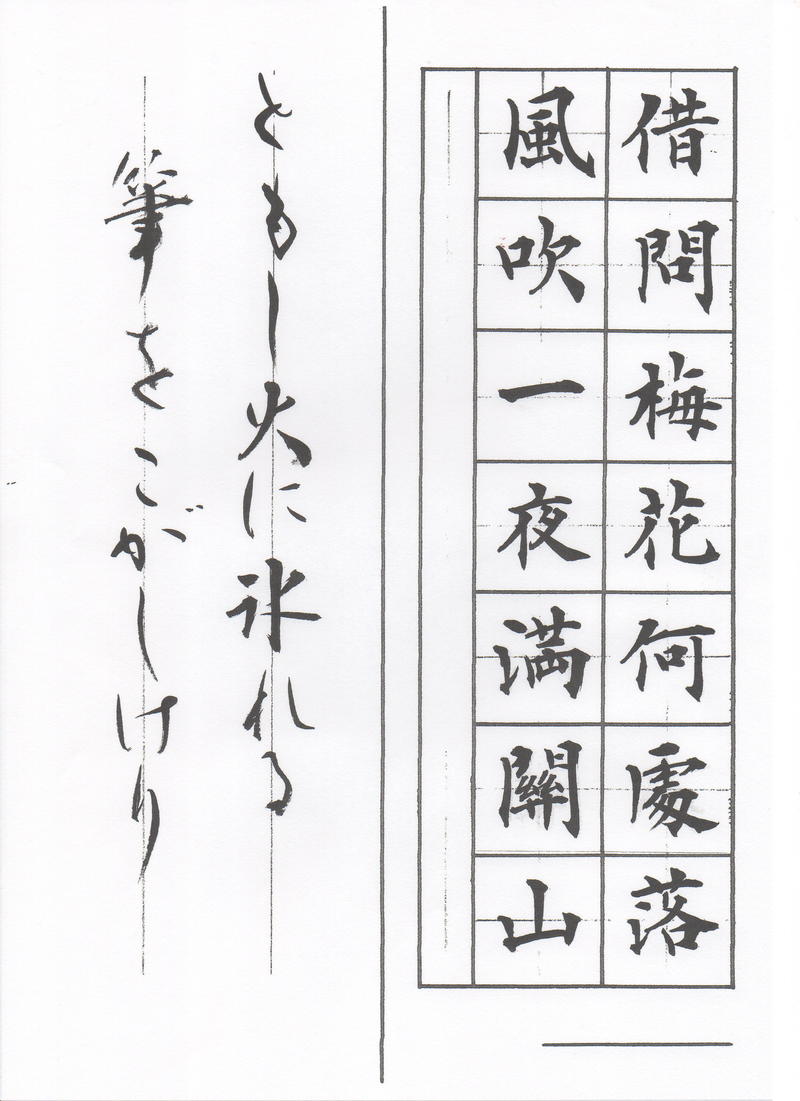 借問梅花何處落
風吹一夜満關山
ともし火に氷れる
筆をこがしけり